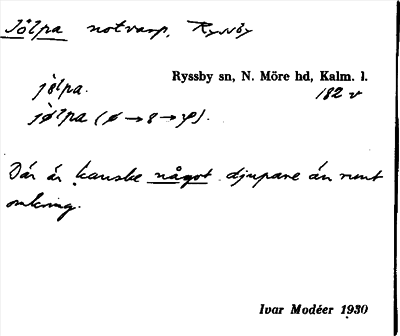 Jölpa notvarp, Ryssby
Ryssby sn, N. Möre hd, Kalm. l.
jö̀lpa. 182 v
jø̀lpa (ø → 8 → φ).
Där är kanske något djupare än runt
omkring.
Ivar Modéer 1930